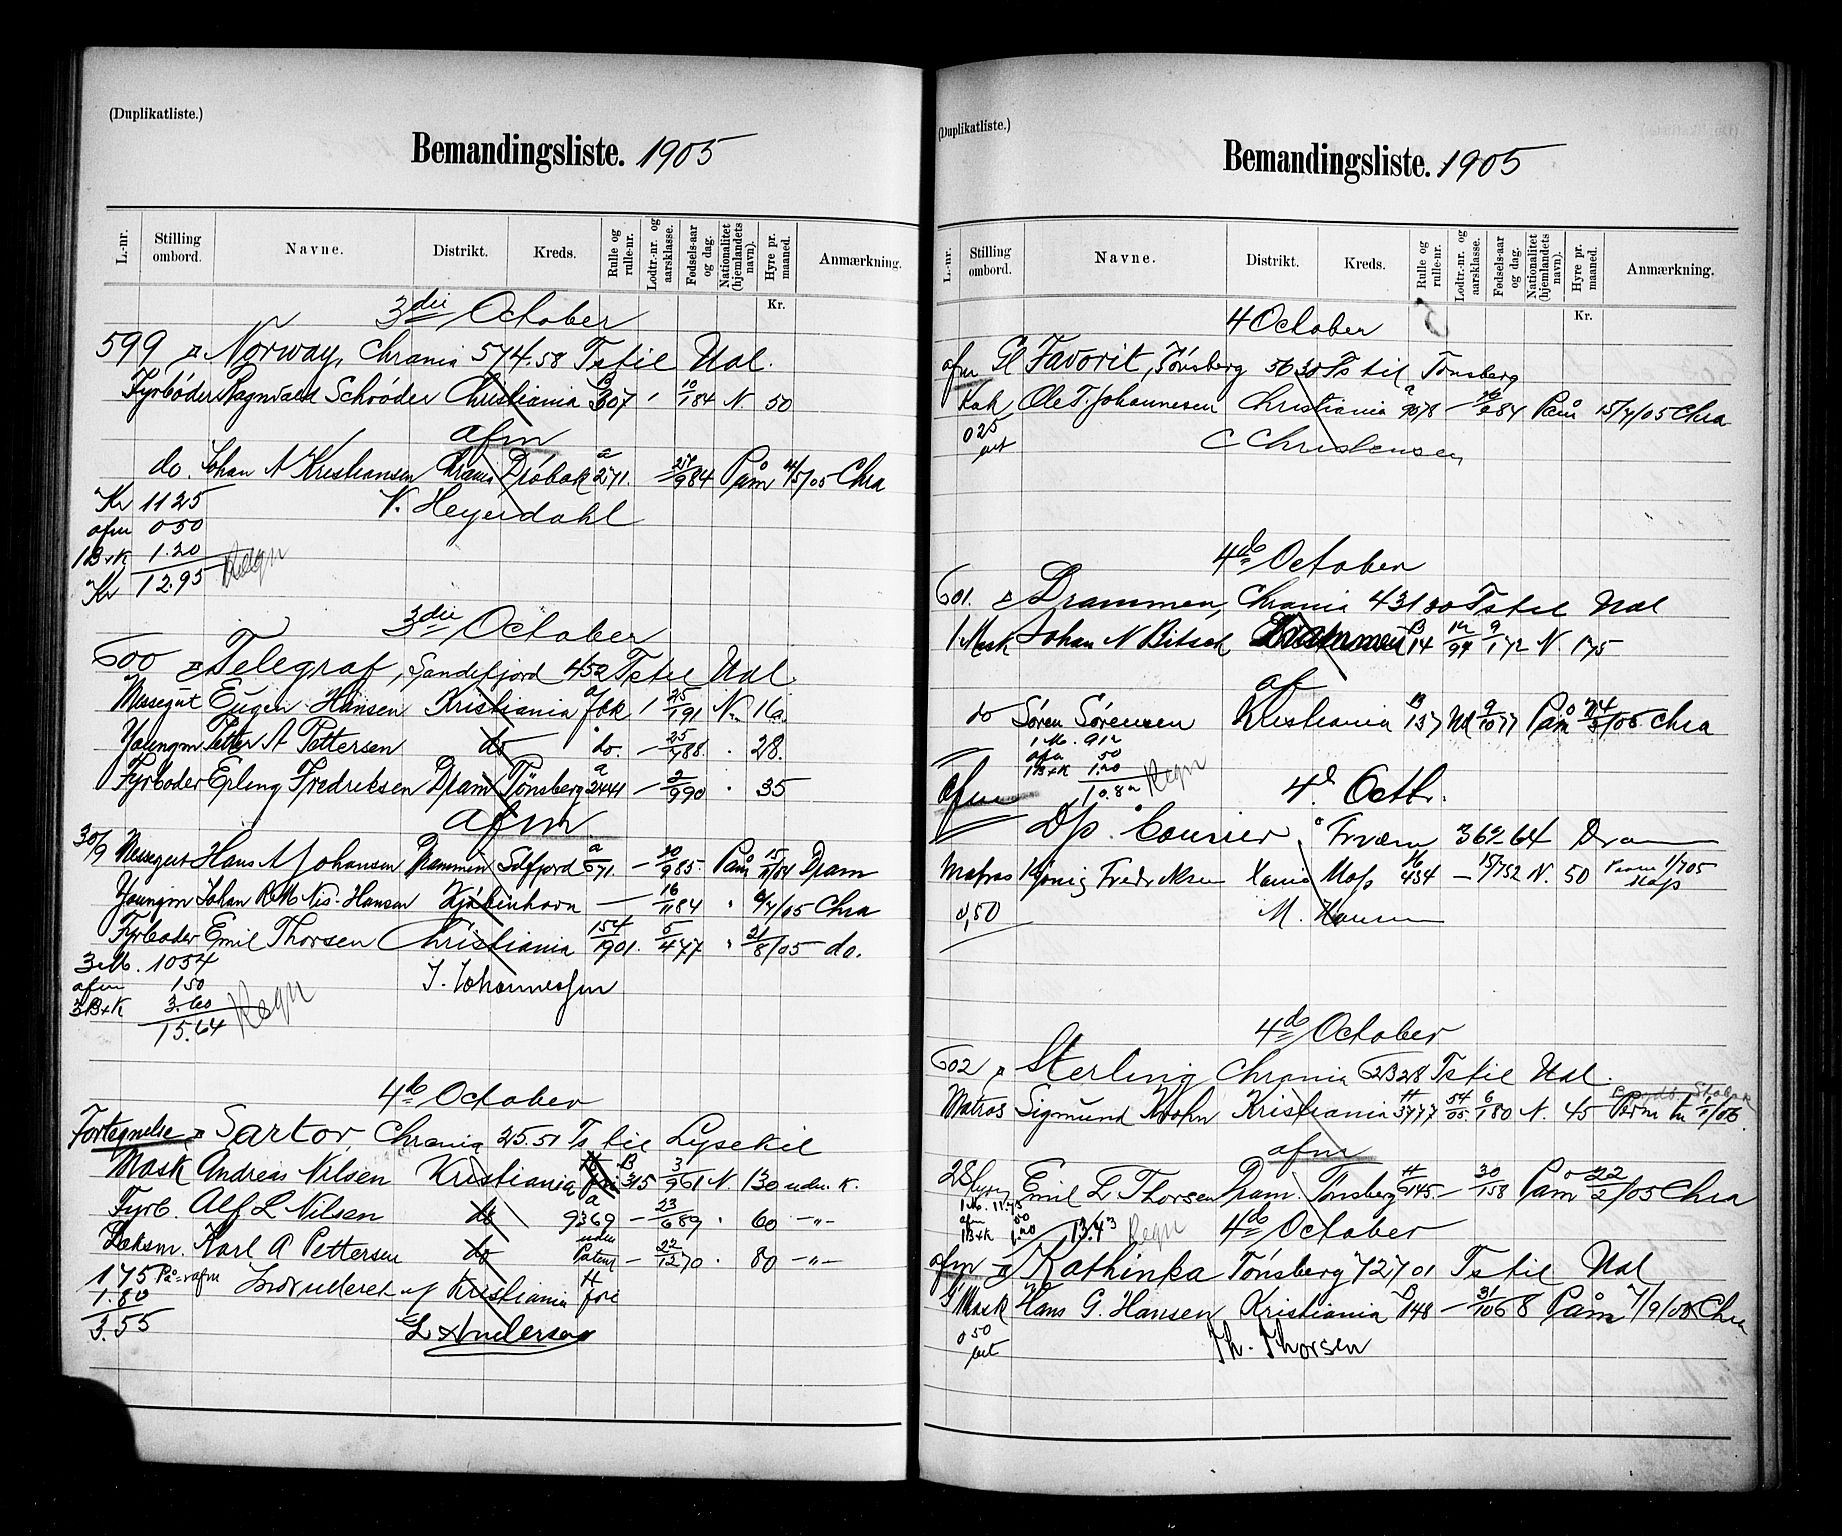 (Duplikatliste.)
Bemandingsliste. 1905
L.-nr.
Stilling ombord.
Navne.
Distrikt.
Kreds.
Rulle og rulle-nr.
Lodtr.-nr. og aarsklasse.
Fødsels-aar og dag.
Nationalitet (hjemlandets navn).
Hyre pr. maaned.
Anmærkning.
Kr.
3die October
599 Norway, Chrania 574.58 Ts til Udl.
Fyrbøder Ragnvald Schrøder Christiania 307 10/1 84 N. 50
afm
do. Johan A Kristiansen Chrania Drøbak a 271. 27/9 84 Påm 4/5/05 Chra
Kr 11 25 N. Heyerdahl
afm 0 50
1 B+K 1.20
Kr 12.95 Regn
3die October
600 Telegraf, Sandefjord 452 Ts til Udl
Messegut Eugen Hansen Kristiania 1 25/1 91 N. 16
Youngm Petter A Pettersen do do. – 25/7 88. 28.
Fyrbøder Erling Fredriksen Dram Tønsberg a 2441 – 2/9 90 35
afm
30/9 Messegut Hans A Johansen Drammen Sdfjord a 671 – 20/9 85 Påm 15/11/04 Dram
Youngm Johan R M Nis-Hansen Kjøbenhavn – 16/11 84 " 6/7/05 Chra
Fyrbøder Emil Thorsen Christiania 154/1901. 5/4 77 " 21/8/05 do.
3 M. 10 54 J. Johannessen
afm 1 50
3 B+K 3.60
15.64 Regn
4de October
Fortegnelse Sartor, Chrania 25.51 Ts til Lysekil
Mask Andreas Nilsen Kristiania B 315 3/9 61 N. 130 uden K.
Fyrb. Alf L Nilsen do a 9369 – 23/6 89 " 60 –"–
Dæksm. Karl A Pettersen do uden Patent – 22/12 70 " 80 –"–
1 75 Kristiania
1.80
3.55 L Andersen
(Duplikatliste.)
Bemandingsliste. 1905
L.-nr.
Stilling ombord.
Navne.
Distrikt.
Kreds.
Rulle og rulle-nr.
Lodtr.-nr. og aarsklasse.
Fødsels-aar og dag.
Nationalitet (hjemlandets navn).
Hyre pr. maaned.
Anmærkning.
Kr.
4 October
afm Gl Favorit, Tønsberg 56 30 Ts til Tønsberg
Kok Ole T. Johannesen Christiania a 9078 – 84 Påm 15/7/05 Chra
0 25 C Christensen
4de October
601. Drammen, Chrania 431 80 Ts til Udl
1 Mask Johan N Bitsch B 14 12/94 9/1 72 N. 175
af
do Søren Sørensen Kristiania B 137 Udl 9/10 77 Påm /05 Chra
1 M.
afm 50
1 B+K 1.20
Regn
afm 4d. Octbr.
D/p. Courier, Frværn 362 64 Dram
Matros Kønig Fredriksen Xania Moss 434 – 15/7 52 N. 50 Paam 1/7 05 Moss
0,50 M. Hansen
4de October
602 Sterling Chrania 623 28 Ts til Udl.
Matros Sigmund Krohn Kristiania H 3777 54/05 6/1 80 N. 45
afm
28 Emil L Thorsen Dram. Tønsberg H 6145 – 30/1 58 Påm 22/2/05 Chra
1 M. 11.73
afm 50
1 B+K 1,20 13.43 Regn 4de October
afm Kathinka Tønsberg 727 01 Ts til Udl
Mask Hans G. Hansen Kristiania B 148 – 31/10 68 Påm 7/9/05 Chra
0 50 Th. Thorsen